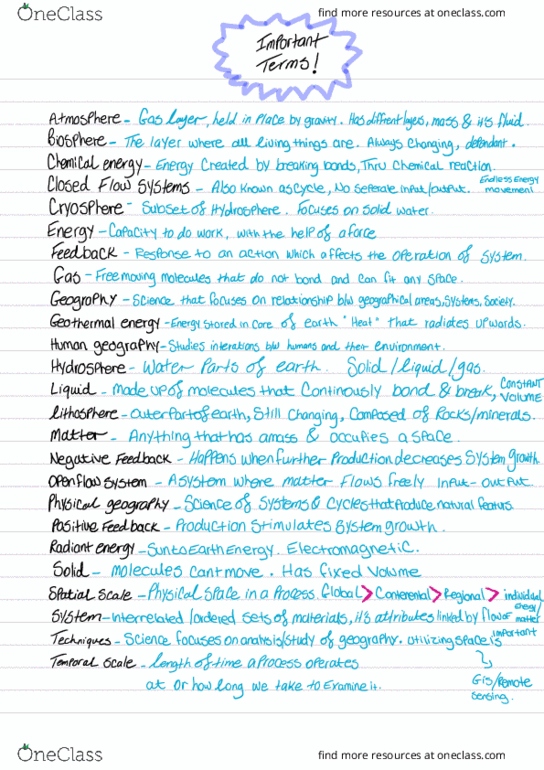 OneClass
find more resources at oneclass.com
Important
Terms!
Atmosphere - Gas layer, held in place by gravity. Has diffrent layers, mass & it's fluid.
Biosphere - The layer where all living things are. Always Changing, defendant.
Chemical energy - Energy Created by breaking bonds, Thru Chemical reaction.
Closed Flow Systems - Also Known as Cycle, No Seperate input/output. Endless Energy movement
Cryosphere - Subset of Hydrosphere. Focuses on Solid water.
Energy - Capacity to do work, with the help of a force
Feedback - Response to an action which affects the operation of System.
Gas - Free moving molecules that do not bond and can fit any space.
Geography - Science that focuses on relationship b/w geographical areas, Systems, Society.
Geothermal energy - Energy Stored in Core of earth "Heat" that radiates upwards.
Human geography - Studies interations b/w humans and their environment.
Hydrosphere - Water Parts of earth. Solid/liquid/gas.
Liquid - Made up of molecules that Continously bond & break, CONSTANT VOLUME
Lithosphere - Outer Part of earth, Still Changing, Composed of Rocks/minerals.
Matter - Anything that has a mass & occupies a space.
Negative Feedback - Happens when further Production decreases System growth
Open flow system - A System where matter flows freely input - output.
Physical geography - Science of Systems & Cycles that Produce natural featurs.
Positive Feedback - Production Stimulates System growth.
Radiant energy - Sun to Earth Energy. Electromagnetic.
Solid - Molecules Cant move. Has fixed Volume
Spatial Scale - Physical Space in a Process. Global > Conterental > Regional > individual
System - Interrelated/ordered sets of materials, it's attributes linked by flow of energy/matter
Techniques - Science focuses on analysis/study of geography. Utilizing space is important
Temporal Scale - Length of time a Process operates
at or how long we take to Examine it.
Gis/Remote
Sensing.
OneClass
find more resources at oneclass.com